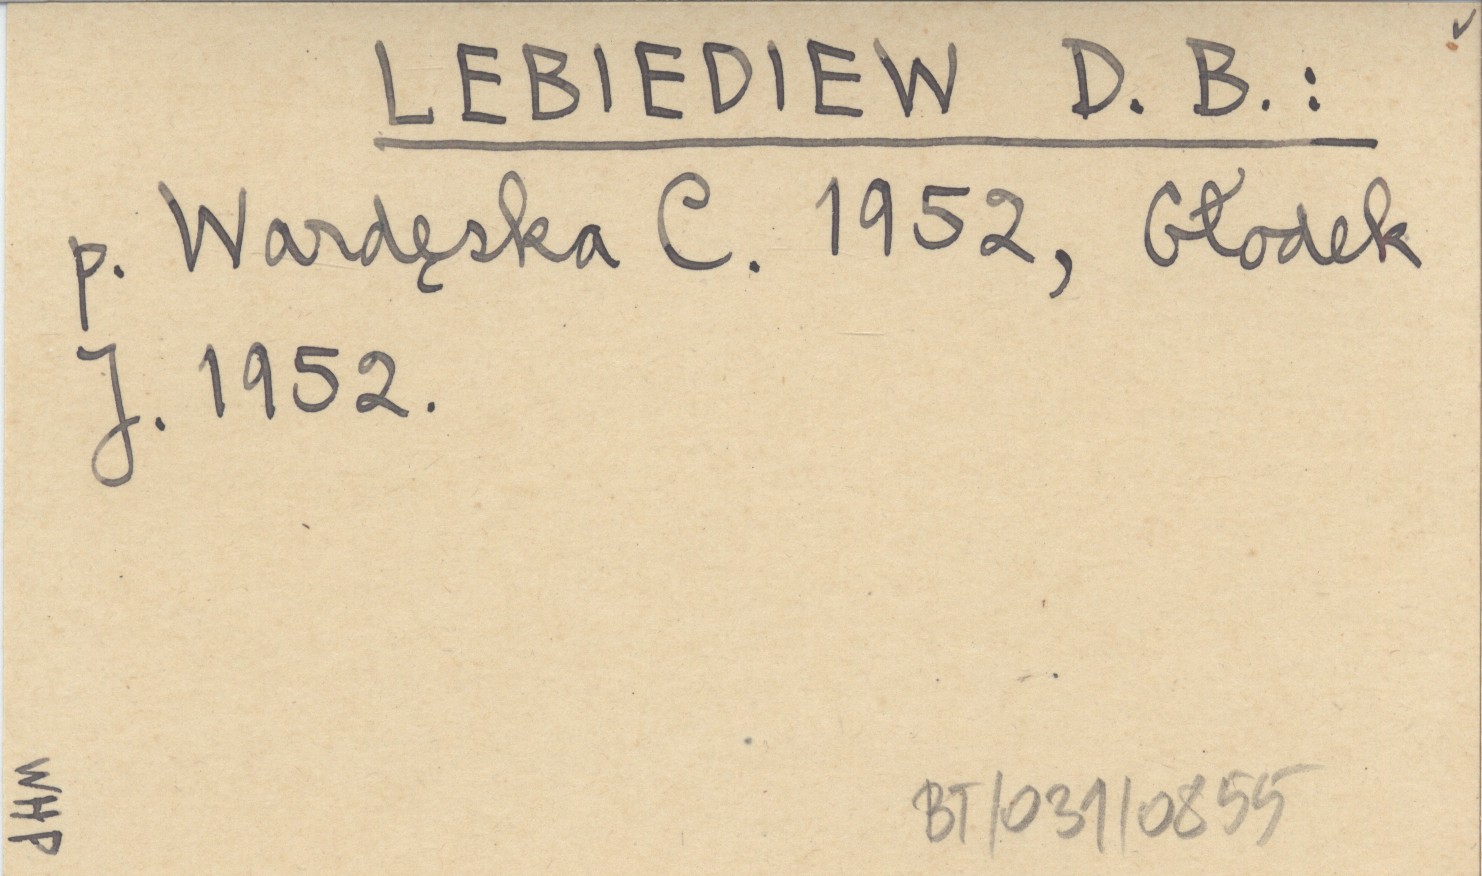 LEBIEDIEW D. B.:
p. Wardęska C. 1952, Głodek
J. 1952.
WHP
BT/031/0855